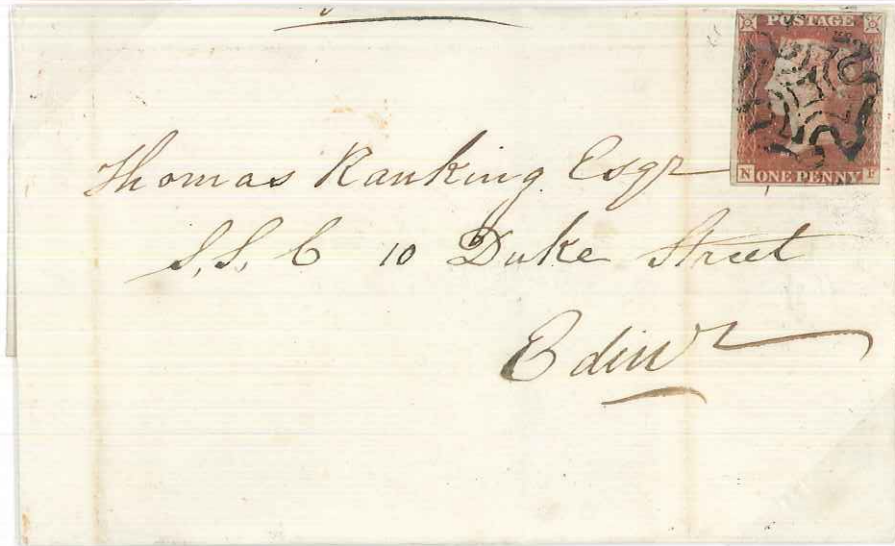 POSTAGE
N ONE PENNY F
Thomas Ranking Esqr
S.S.C 10 Duke Street
Edinr